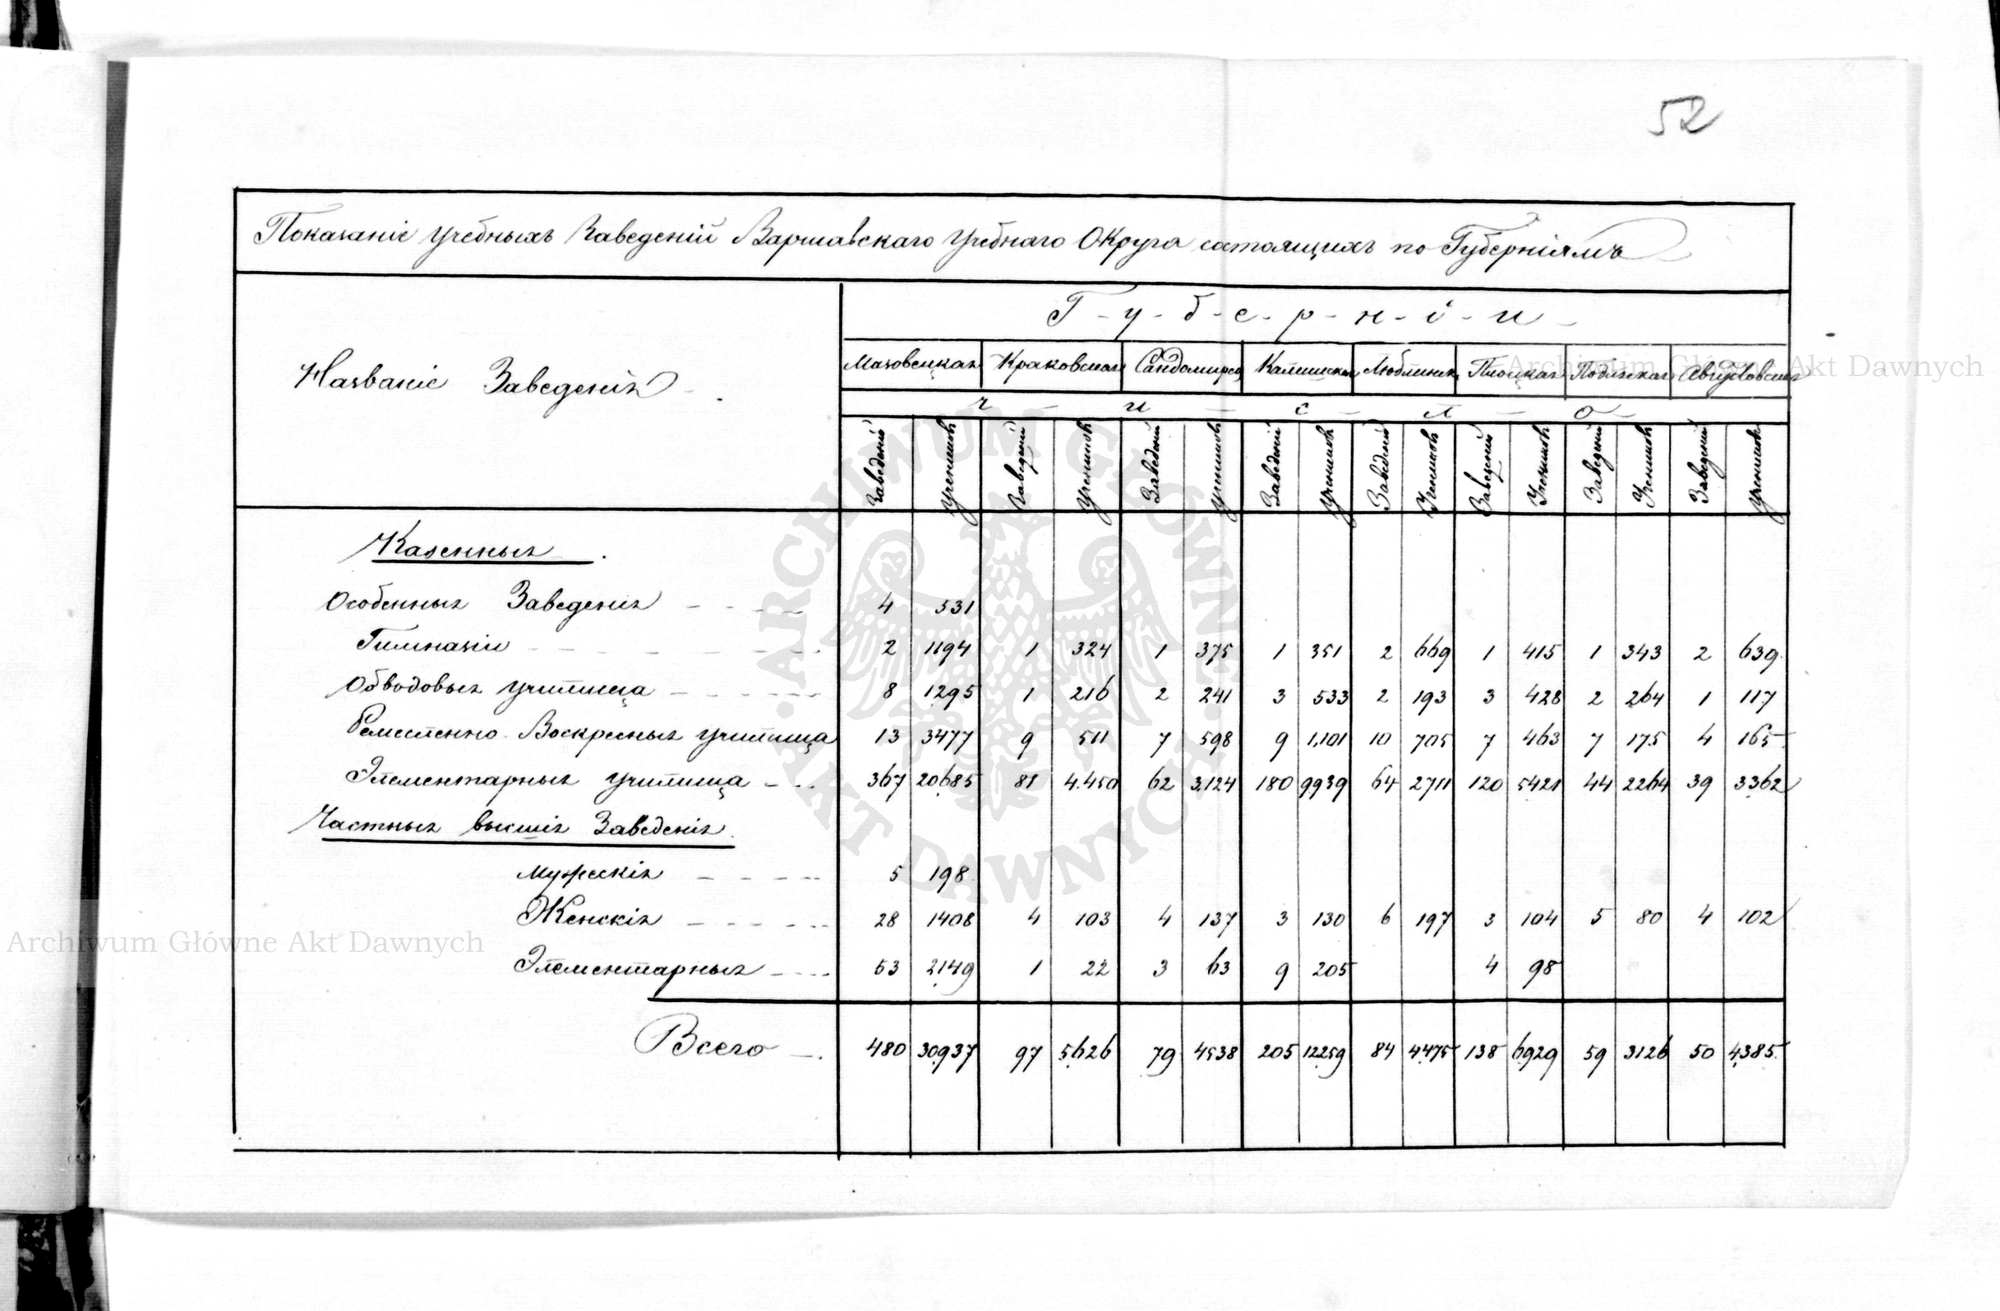 52
Показаніе учебныхъ Заведеній Варшавскаго Учебнаго Округа состоящихъ по Губерніямъ
Г-у-б-е-р-н-і-и
Названіе Заведенія
Мазовецкая Краковская Сандомирск Калишская Люблинск Плоцкая Подляская Августовская
ч-и-с-л-о
Заведеній Учениковъ Заведеній Учениковъ Заведеній Учениковъ Заведеній Учениковъ Заведеній Учениковъ Заведеній Учениковъ Заведеній Учениковъ Заведеній Учениковъ
Казенныя
Особенныя Заведенія 4 531
Гимназіи 2 1194 1 324 1 375 1 351 2 669 1 415 1 343 2 639
Обводовыя училища 8 1295 1 216 2 241 3 533 2 193 3 428 2 264 1 117
Ремесленно-Воскресныя училища 13 3477 9 511 7 598 9 1,101 10 705 7 463 7 175 4 165
Элементарныя училища 367 20685 81 4.450 62 3,124 180 9939 64 2711 120 5421 44 2264 39 3362
Частныя высшія Заведенія.
Мужескія 5 198
Женскія 28 1408 4 103 4 137 3 130 6 197 3 104 5 80 4 102
Элементарныя 53 2149 1 22 3 63 9 205 4 98
Всего 480 30937 97 5626 79 4538 205 12259 84 4475 138 6929 59 3126 50 4385
ARCHIWUM GŁÓWNE AKT DAWNYCH
Archiwum Główne Akt Dawnych
Archiwum Główne Akt Dawnych